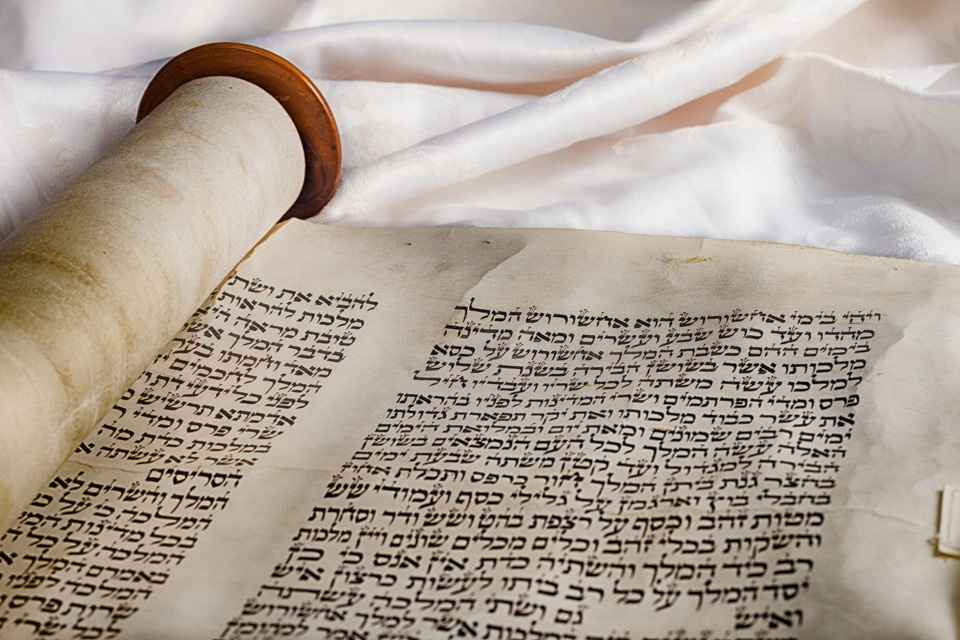 ויהי בימי אחשורוש הוא אחשורוש המלך
מהדו ועד כוש שבע ועשרים ומאה מדינה
בימים ההם כשבת המלך אחשורוש על כסא
מלכותו אשר בשושן הבירה בשנת שלוש
למלכו עשה משתה לכל שריו ועבדיו חיל
פרס ומדי הפרתמים ושרי המדינות לפניו בהראתו
את עשר כבוד מלכותו ואת יקר תפארת גדולתו
ימים רבים שמונים ומאת יום ובמלואת הימים
האלה עשה המלך לכל העם הנמצאים בשושן
הבירה למגדול ועד קטן משתה שבעת ימים
בחצר גנת ביתן המלך חור כרפס ותכלת אחוז
בחבלי בוץ וארגמן על גלילי כסף ועמודי שש
מטות זהב וכסף על רצפת בהט ושש ודר וסחרת
והשקות בכלי זהב וכלים מכלים שונים ויין מלכות
רב כיד המלך והשתיה כדת אין אנס כי כן
יסד המלך על כל רב ביתו לעשות כרצון איש
ואיש גם ושתי המלכה עשתה
המלכות אשר למלך אחשורוש
אמר למהומן
להביא את ושתי
מלכות להראות
טובת מראה היא
בדבר המלך אשר
מאד וחמתו בערה
המלך לחכמים
לפני כל ידעי דת
אדמתא תרשיש
שרי פרס ומדי
במלכות כדת מה
אשר לא עשתה
הסריסים
המלך והשרים לא
המלך כי על כל
מדינות המלך
המלכה על כל
באמרם המלך
המלכה לפניו
שרות פרס
לכל שרי